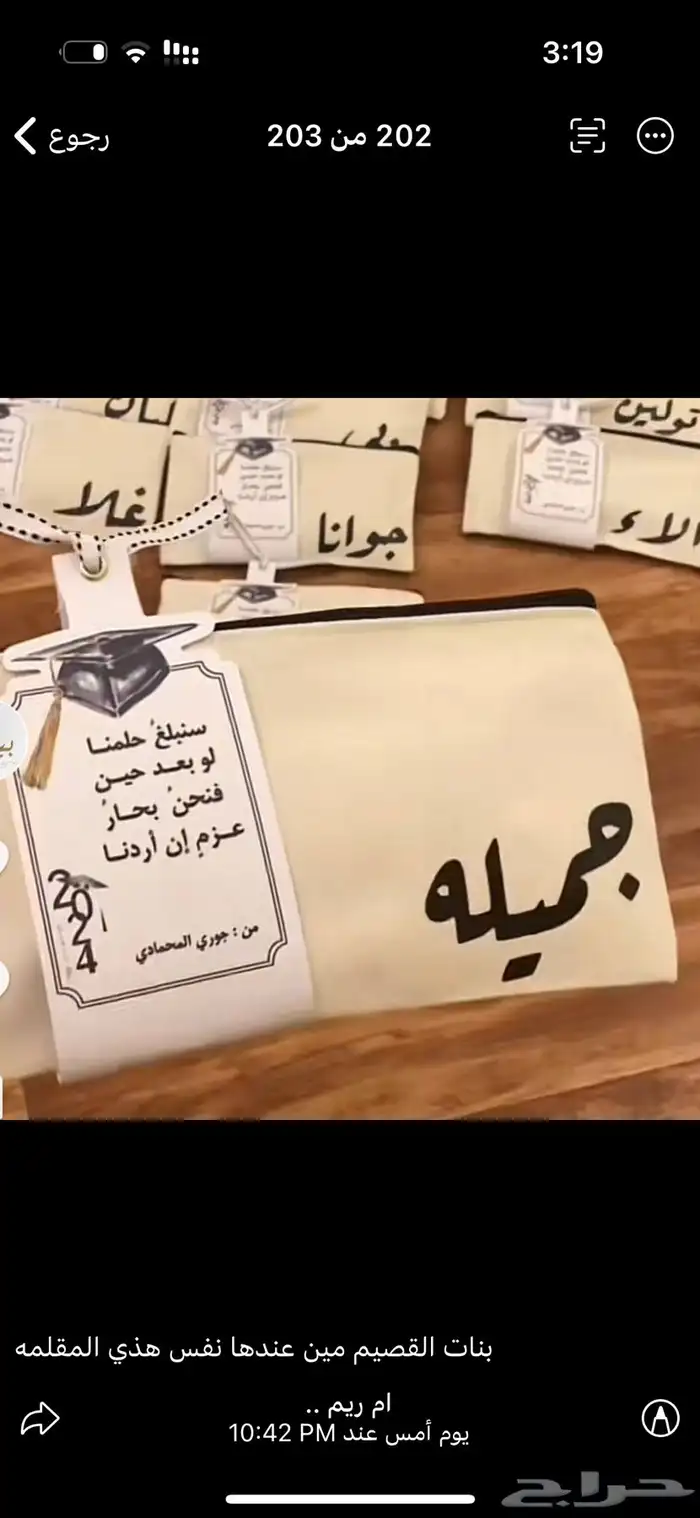 3:19
رجوع
202 من 203
تولين
غلا
جوانا
الاء
سنبلغُ حلمنا
لو بعد حين
فنحنُ بحارُ
عزمٍ إن أردنا
2024
من : جوري المحمادي
جميله
بنات القصيم مين عندها نفس هذي المقلمه
ام ريم ..
يوم أمس عند 10:42 PM
حراج